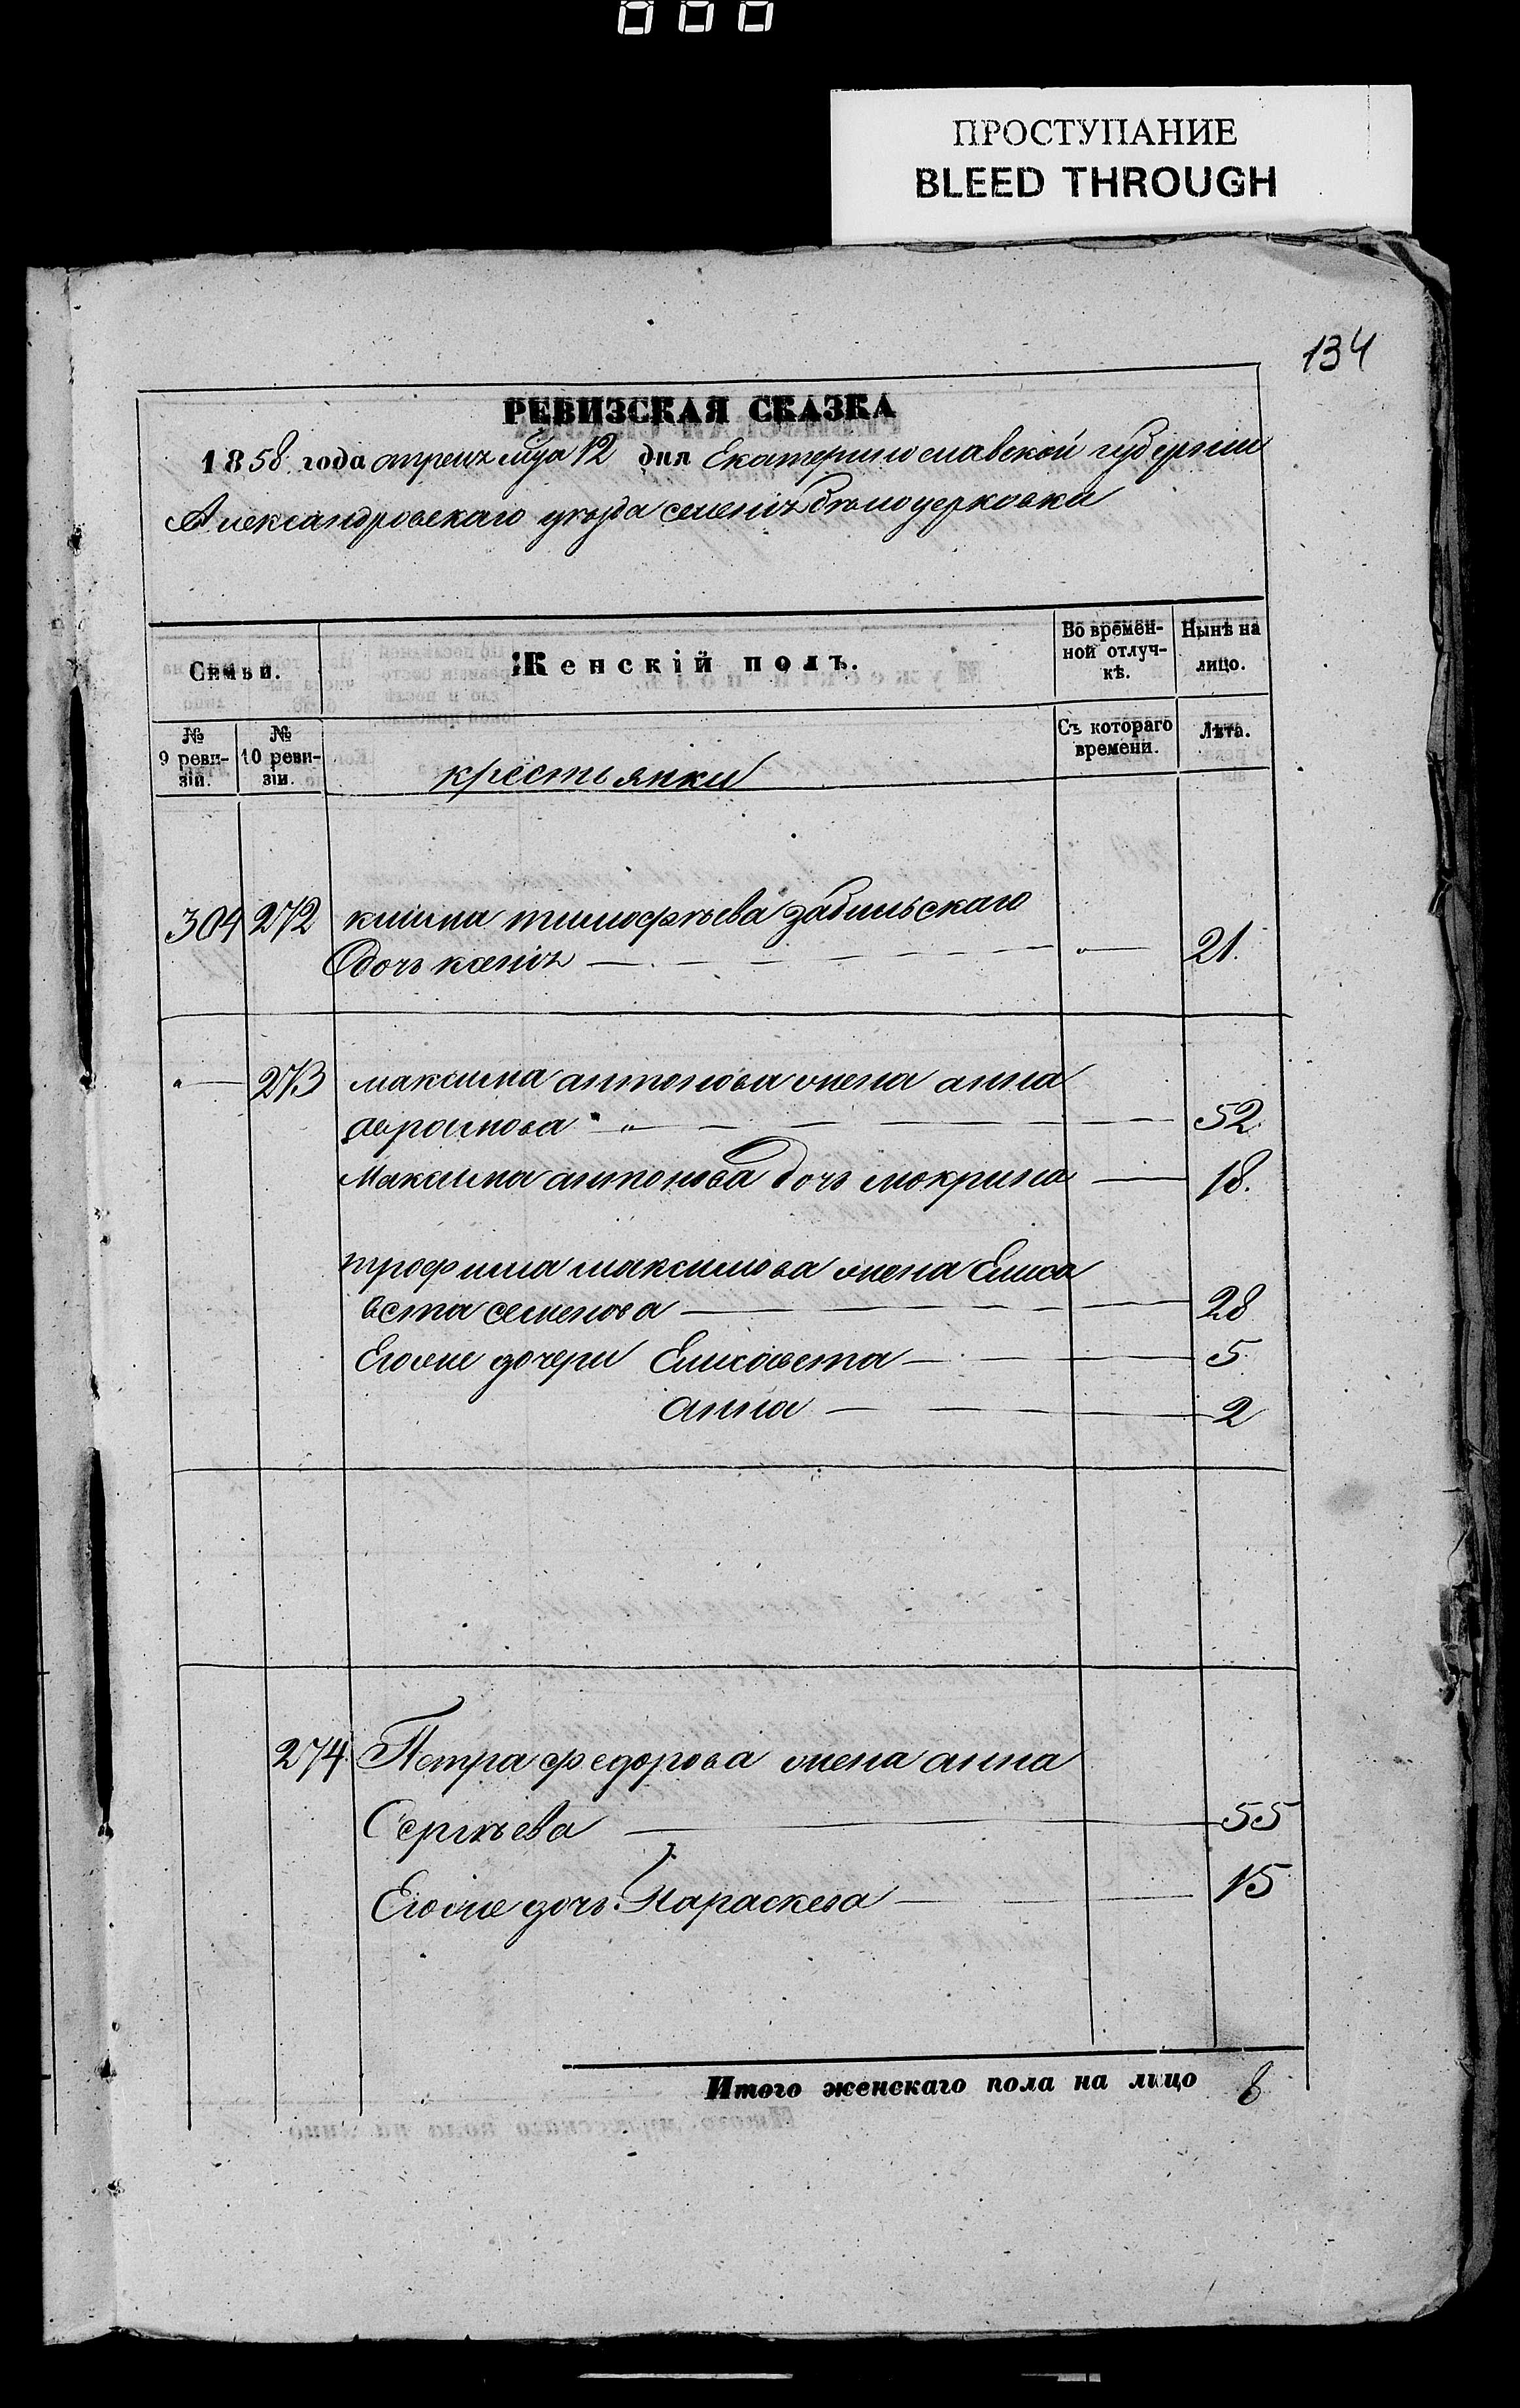 000
ПРОСТУПАНИЕ
BLEED THROUGH
134
РЕВИЗСКАЯ СКАЗКА
1858 года апреля мца 12 дня Екатеринославской губернии
Александровскаго уезда бѣлоцерковки
Семьи.
Женскій полъ.
Во времен-
ной отлуч-
кѣ.
Нынѣ на
лицо.
№
9 реви-
зіи.
№
10 реви-
зіи.
крестьянки
Съ котораго
времени.
Лѣта.
304 272 тимофѣева
дочь 21.
" 273 максима антонова жена анна
52
Максима антонова дочь мокрина 18.
трофима максимова жена Елиса
вета семенова 28
Егоже дочери Елисавета 5
анна 2
274 Петра федорова жена анна
Сергѣева 55
Егоже дочь Параскева 15
Итого женскаго пола на лицо 8